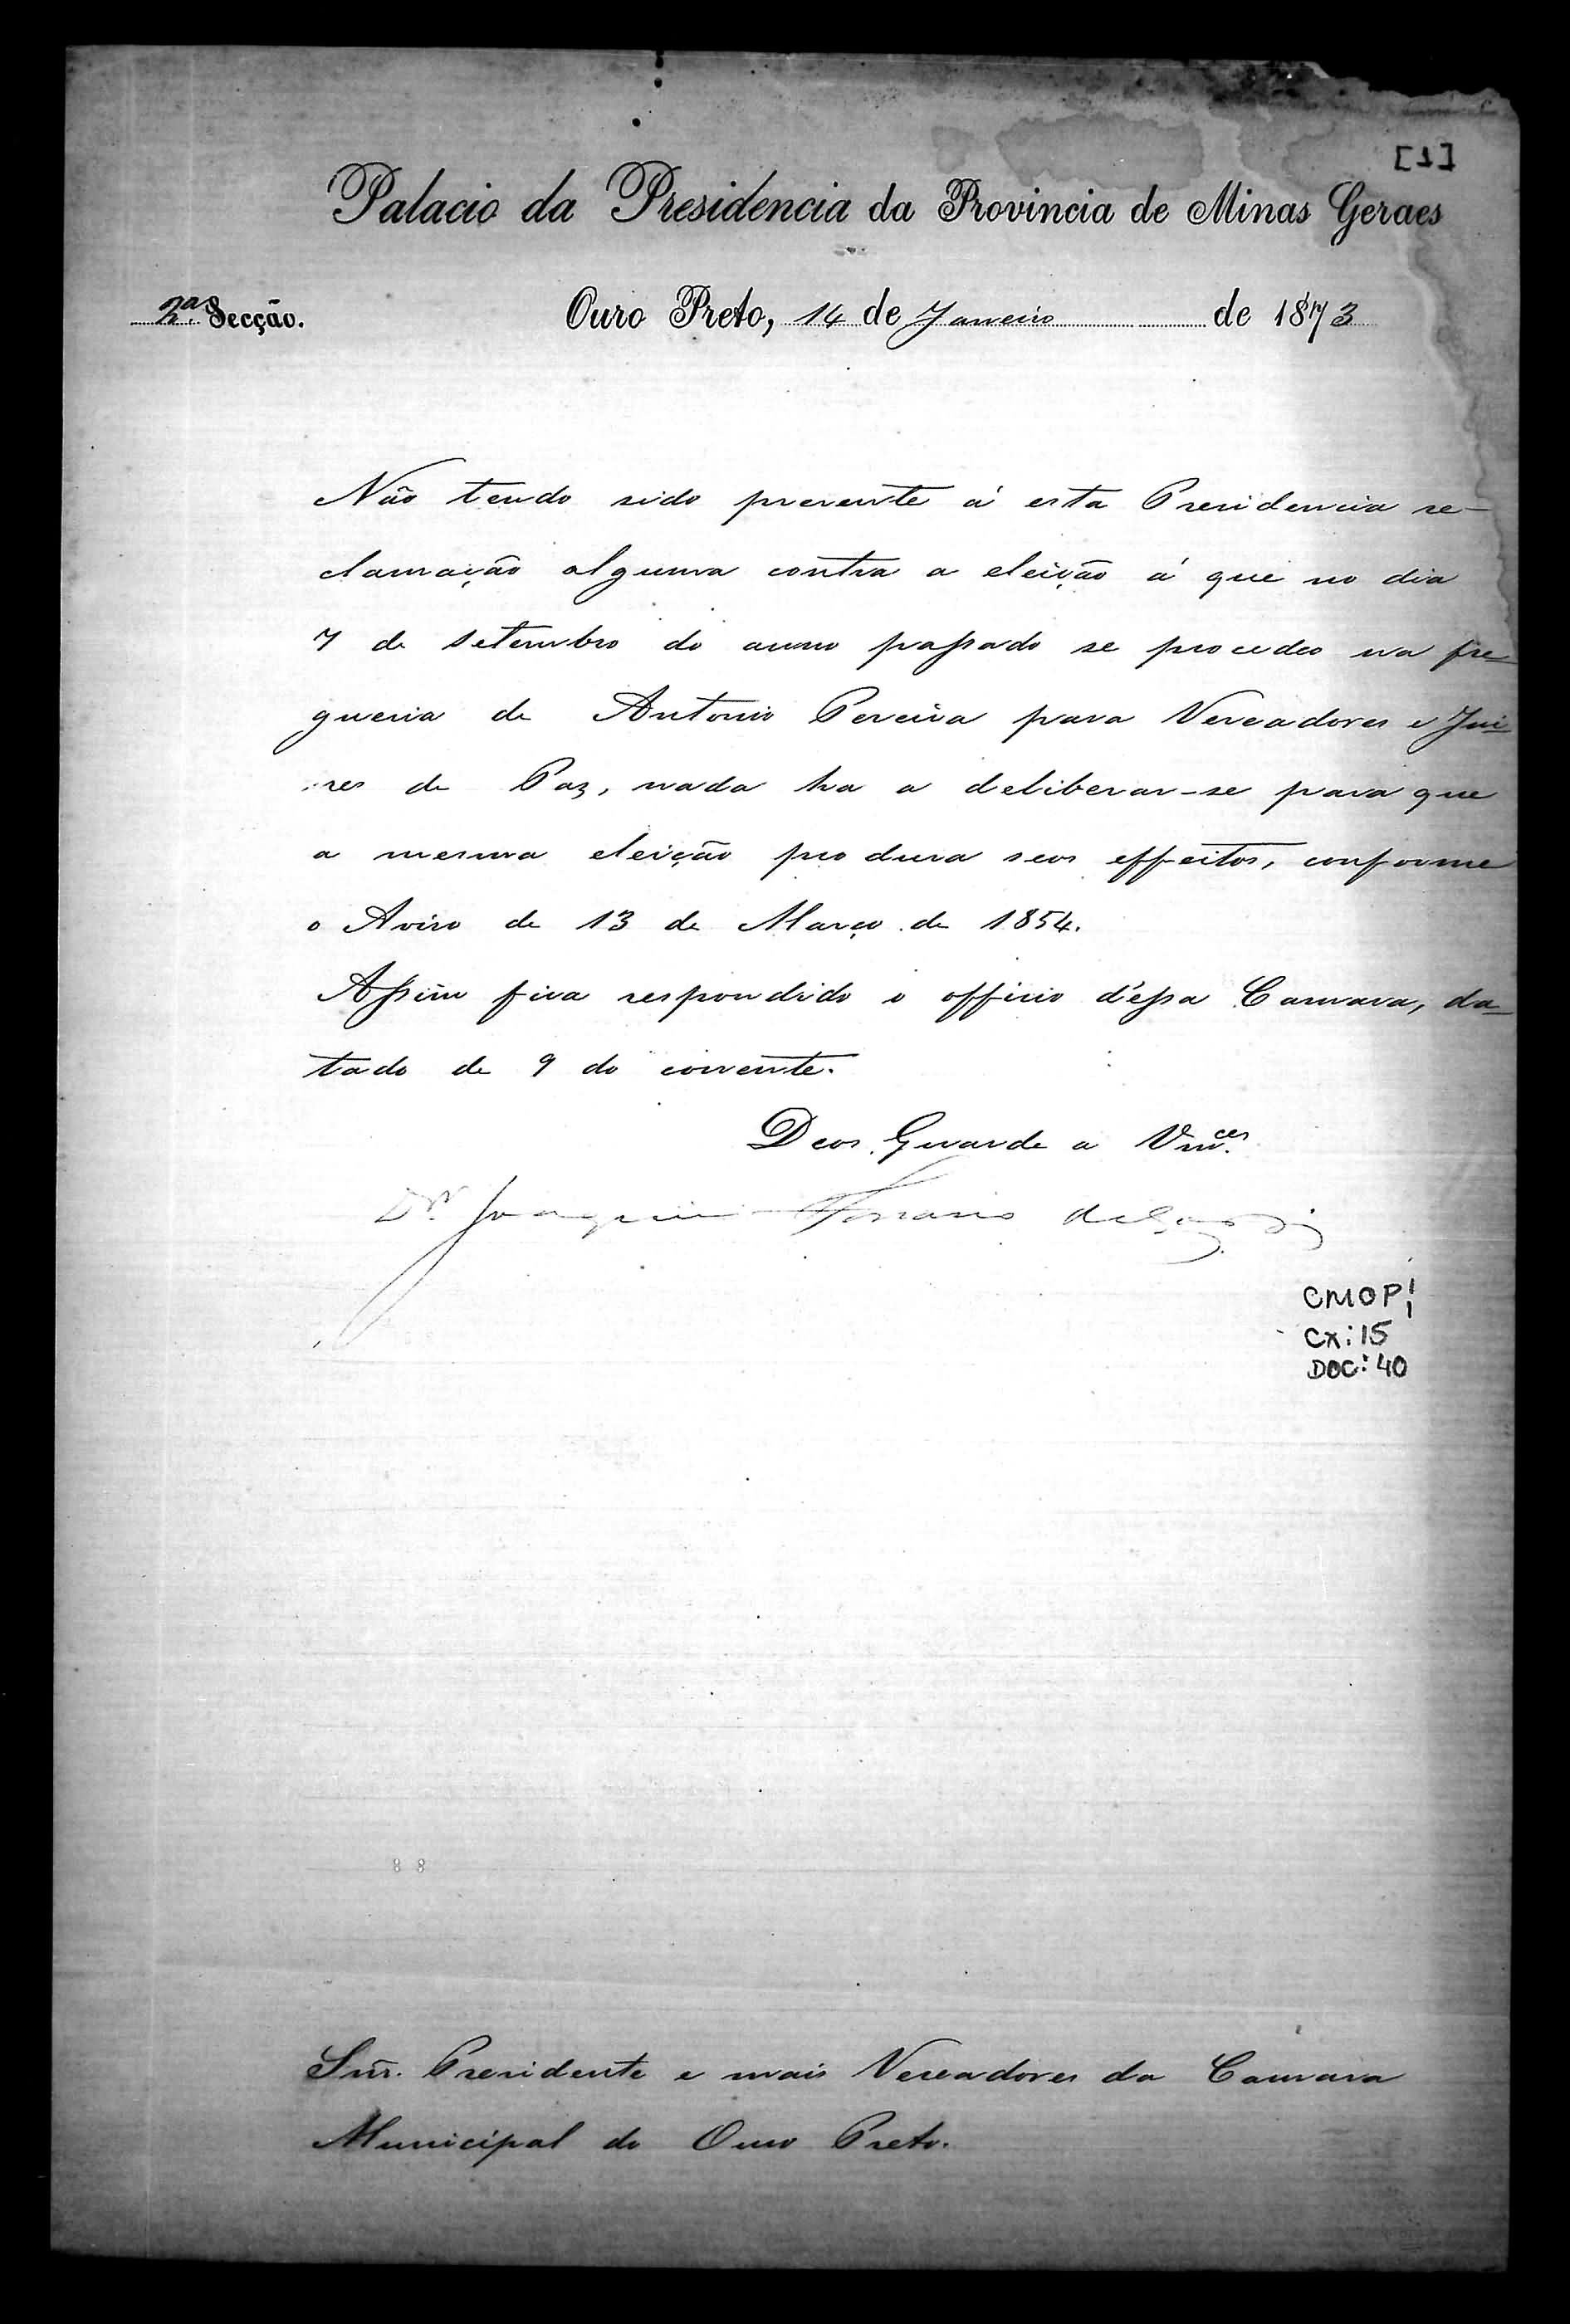 [1]
Palacio da Presidencia da Provincia de Minas Geraes
2ª Secção. Ouro Preto, 14 de Janeiro de 1873
Não tendo sido presente á esta Presidencia re-
clamação alguma contra a eleição á que no dia
7 de Setembro do anno passado se procedeo na fre-
guesia de Antonio Pereira para Vereadores e Jui-
zes de Paz, nada ha a deliberar-se para que
a mesma eleição produza seos effeitos, conforme
o Aviso de 13 de Março de 1854.
Assim fica respondido o officio d'essa Camara, da-
tado de 9 do corrente.
Deos Guarde a Vmces.
Dr. Joaquim
CMOP
CX: 15
DOC: 40
Snr. Presidente e mais Vereadores da Camara
Municipal do Ouro Preto.